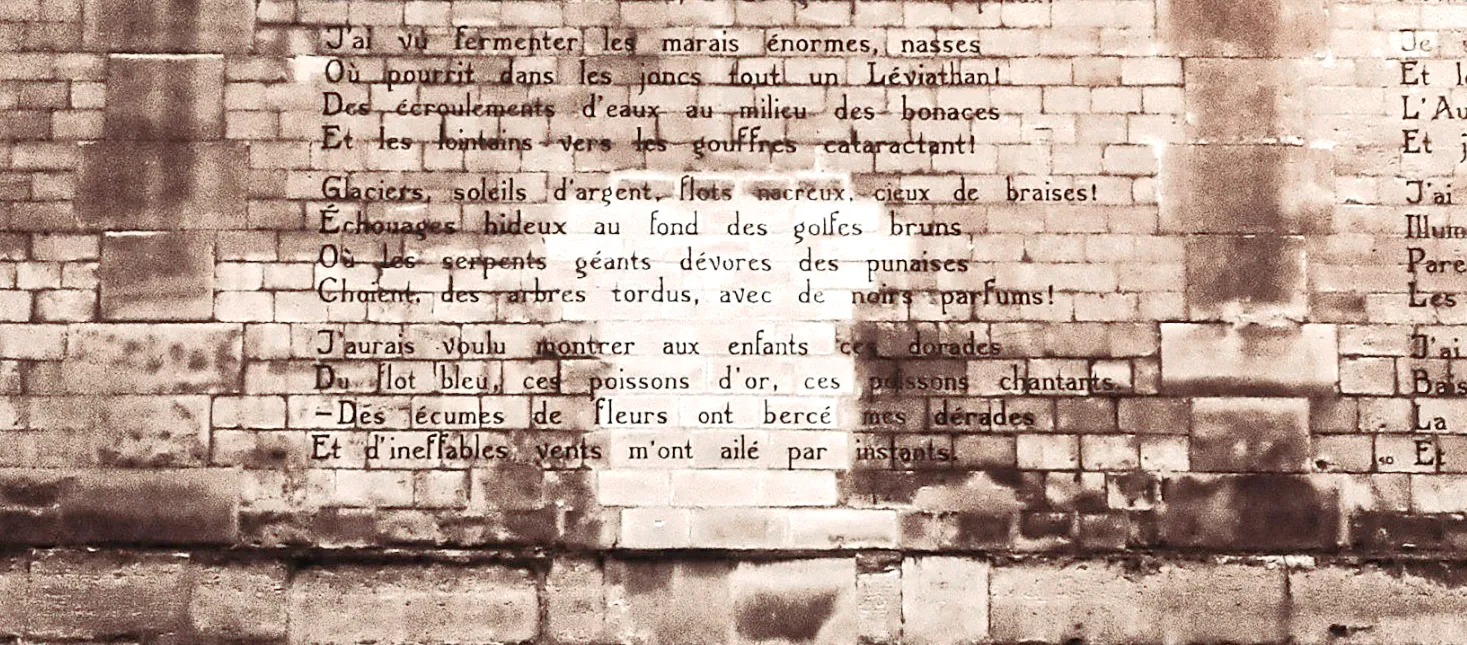 J'ai vu fermenter les marais énormes, nasses
Où pourrit dans les joncs tout un Léviathan!
Des écroulements d'eaux au milieu des bonaces
Et les lointains vers les gouffres cataractant!
Glaciers, soleils d'argent, flots nacreux, cieux de braises!
Échouages hideux au fond des golfes bruns
Où les serpents géants dévores des punaises
Choient, des arbres tordus, avec de noirs parfums!
J'aurais voulu montrer aux enfants ces dorades
Du flot bleu, ces poissons d'or, ces poissons chantants.
-Des écumes de fleurs ont bercé mes dérades
Et d'ineffables vents m'ont ailé par instants.
Je
Et
L'Au
Et j
J'ai
Illum
Pare
Les
J'ai
Bais
La
Et